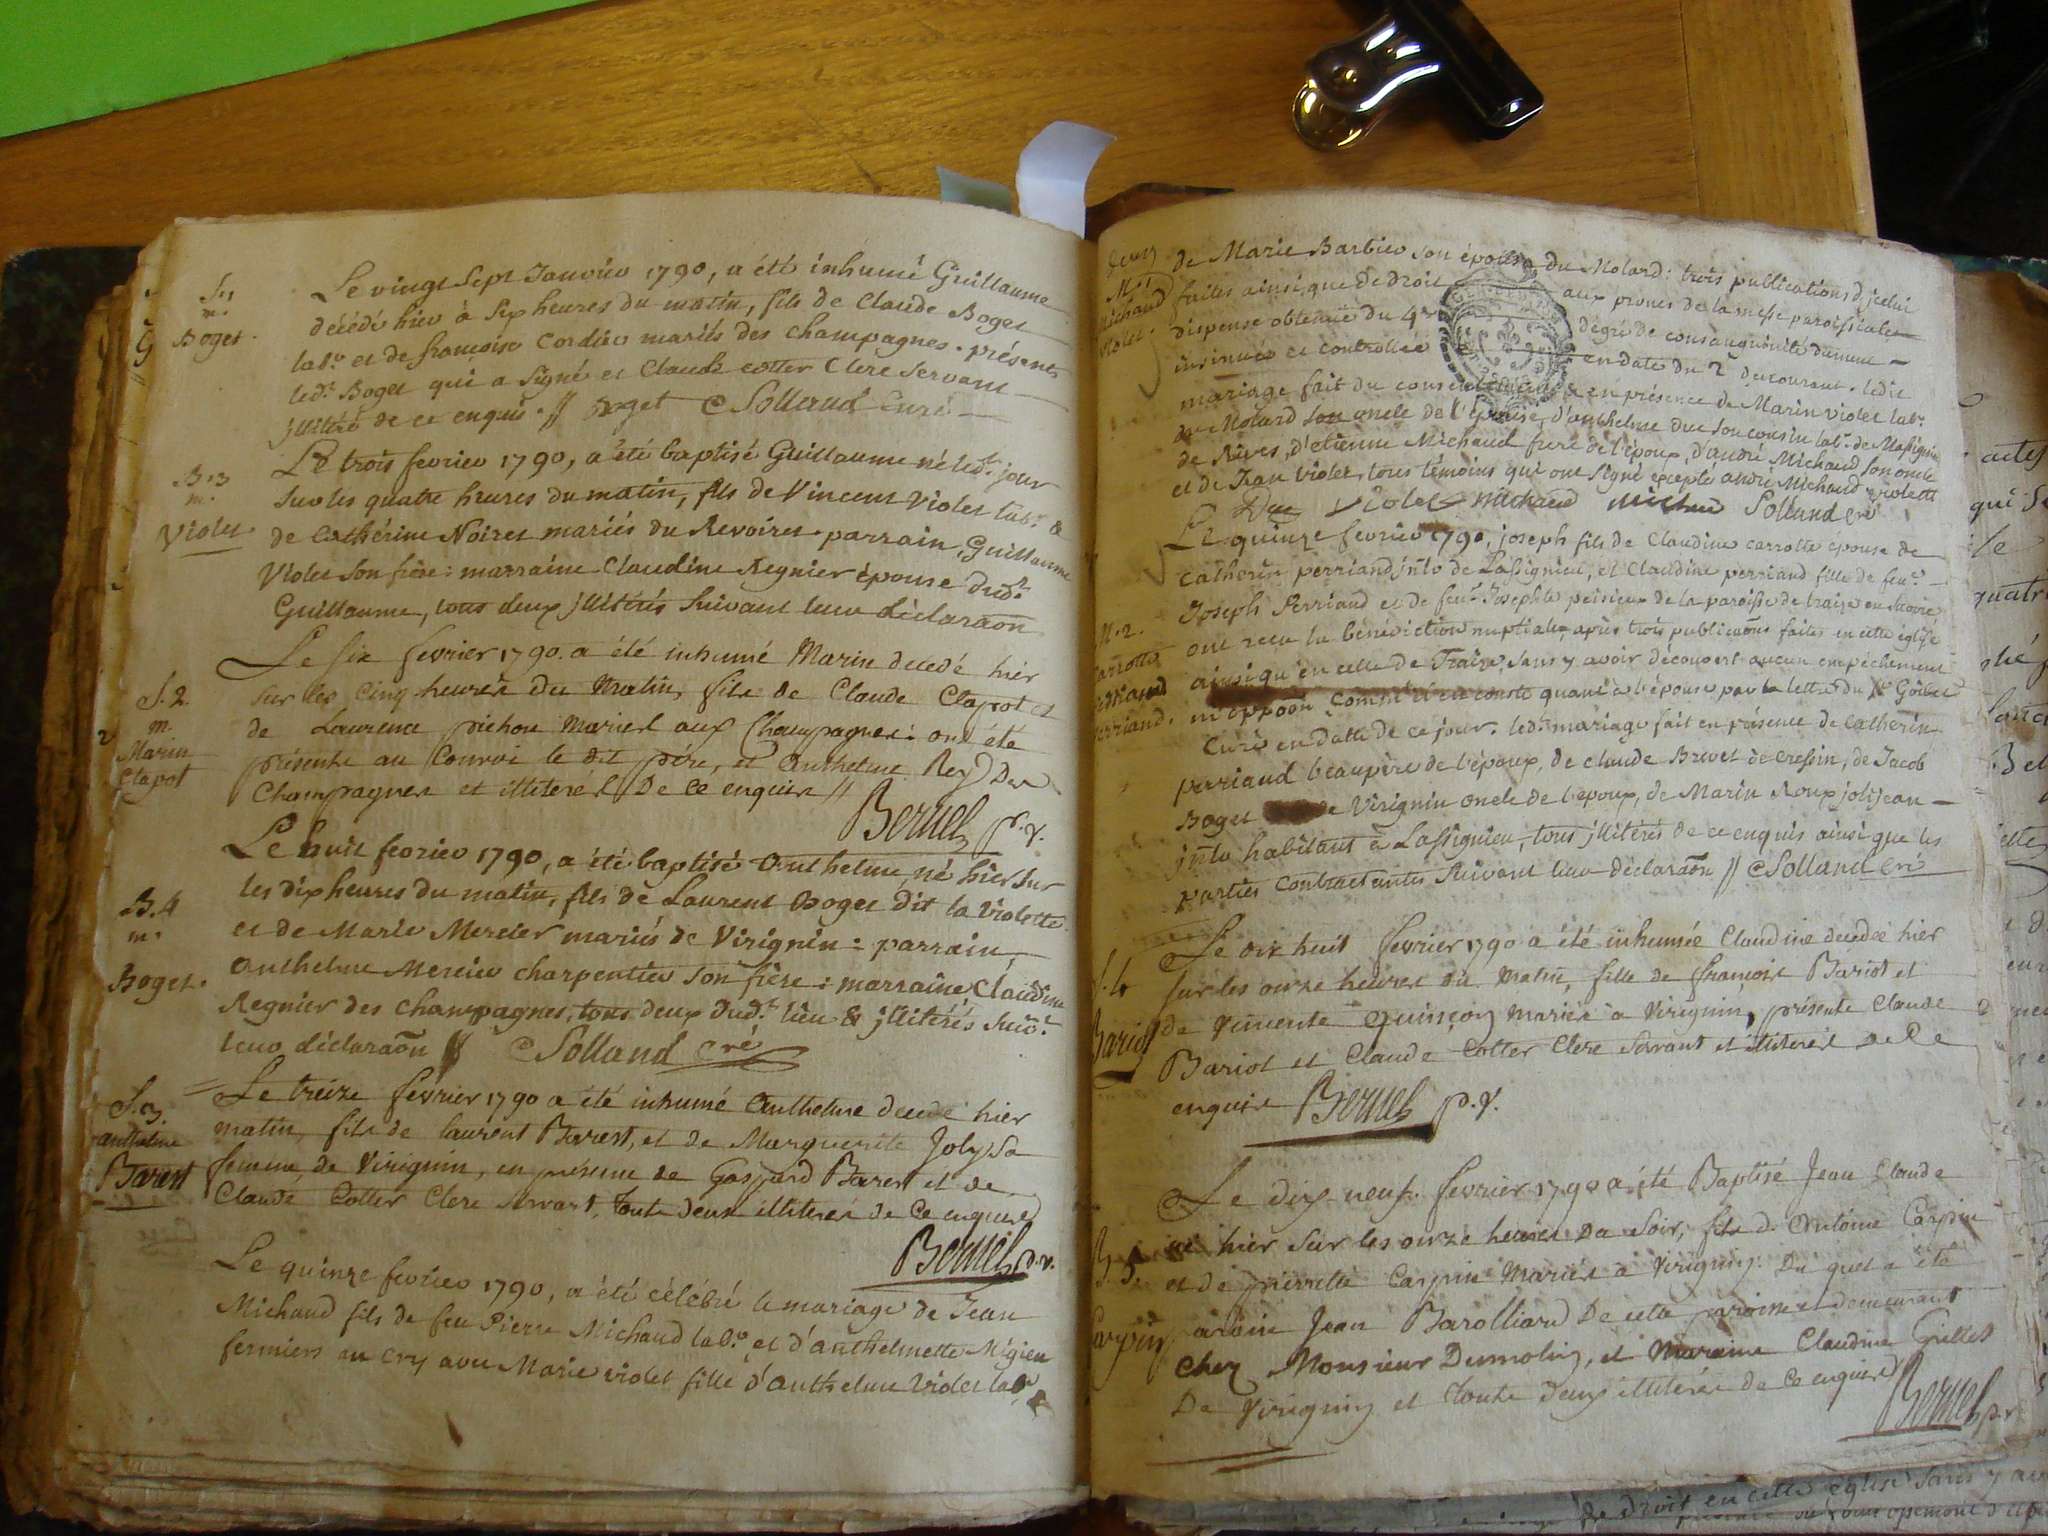 S. 1
m.
Boget.
Le vingt Sept Janvier 1790, a été inhumé Guillaume
décédé hier à Six heures du matin, fils de Claude Boget
labr. et de françoise Cordier mariés des champagnes. présents
ledt. Boget qui a Signé et Claude Cotter Clerc Servant
jllitéré de ce enquis. // Boget Solland Curé
B. 3
m.
Violet
Le trois fevrier 1790, a été baptisé Guillaume né ledt. jour
Sur les quatre heures du matin, fils de Vincent Violet labr. &
de Cathérine Noiret mariés du Revoiret. parrain, Guillaume
Violet Son frère: marraine Claudine Regnier épouse dudt.
Guillaume, tous deux jllitérés Suivant leur déclaraon
S. 2.
m.
Marin
Clapot
Le six fevrier 1790. a été inhumé Marin decedé hier
sur les Cinq heures du Matin, fils de Claude Clapot et
de Laurence pichon Mariés aux Champagnes: ont été
présents au Convoi le dit père, et Anthelme Rey Des
Champagnes et illiterés De Ce enquis //
Bernel p. v.
B. 4
m.
Boget.
Le huit fevrier 1790, a été baptisé Anthelme, né hier Sur
les dix heures du matin, fils de Laurent Boget dit la Violette
et de Marie Mercier mariés de Virignin: parrain,
Anthelme Mercier charpentier Son frère: marraine Claudine
Regnier des Champagnes, tous deux dudt. lieu & jllitérés Suivt.
leur déclaraon // Solland Cré
S. 3.
Anthelme
Barest
Le treize fevrier 1790 a été inhumé Anthelme decedé hier
matin, fils de laurent Barest, et de Marguerite Joly Sa
femme de Virignin, en présence de Gaspard Barest et de
Claude Cotter Clerc Servant, touts deux illiterés de Ce enquere
Bernel p. v.
Le quinze fevrier 1790, a été célébré le mariage de Jean
Michaud fils de feu Pierre Michaud labr. et d'Anthelmette Mégieu
fermiers au Cry avec Marie violet fille d'Anthelme Violet labr.
M. 1
Michaud
Violet.
de Marie Barbier Son épouse du Molard: trois publications d'jcelui
faites ainsi que de droit aux prones de la messe paroissiale
dispense obtenue du 4e dégré de consanguinité dument
insinuée et controllée en date du 2 du courant. ledit
mariage fait du consentement & en présence de Marin violet labr.
du Molard Son oncle de l'épouse, d'anthelme Duc Son cousin labr. de Massignieu
de Rives, d'etienne Michaud frere de l'époux, d'andré Michaud Son oncle
et de Jean Violet, tous témoins qui ont Signé excepté andré Michaud
Duc Violet Michaud Michau Solland Cré
M. 2.
Carrotte
perriand.
Le quinze fevrier 1790, joseph fils de Claudine Carrotte épouse de
Catherin perriand jnlr de Lassignieu, et Claudine perriand fille de feu
Joseph Perriand et de feue Josephte peisieux de la paroisse de traize en Savoie
ont recu la bénédiction nuptiale, après trois publicaons faites en cette église
ainsi qu'en celle de Traize, Sans y avoir découvert aucun empéchement
ni oppoon, comme il en conste quant à l'épouse par la lettre du Sr Goibet
Curé en datte de ce jour. ledt mariage fait en présence de Catherin
perriand beaupère de l'époux, de claude Brivet de Cressin, de Jacob
Boget de Virignin oncle de l'époux, de Marin Roux jolijean
jnlr habitant à Lassignieu, tous jllitérés de ce enquis ainsi que les
parties Contractantes Suivant leur déclaraon // Solland Cré
S. 4
Bariot
Le dix huit fevrier 1790 a été inhumée Claudine decedée hier
sur les onze heures du Matin, fille de françois Bariot et
de Vincente Quinçon Mariés à Virignin, présents Claude
Bariot et Claude Cotter Clerc Servant et illiterés de Ce
enquis Bernel p. v.
B. 5.
Carpin
Le dix-neuf fevrier 1790 a été Baptisé Jean Claude
né hier Sur les onze heures du Soir, fils d'Antoine Carpin
et de pierrette Carpin Mariés à Virignin: Du quel a été
parain Jean Barolliard De cette paroisse demeurant
chez Monsieur Dumolin, et Maraine Claudine Grillet
De Virignin et Touts Deux illiterés de Ce enquere
Bernel p. v.
actes
quatre
de droit en cette eglise Sans y av